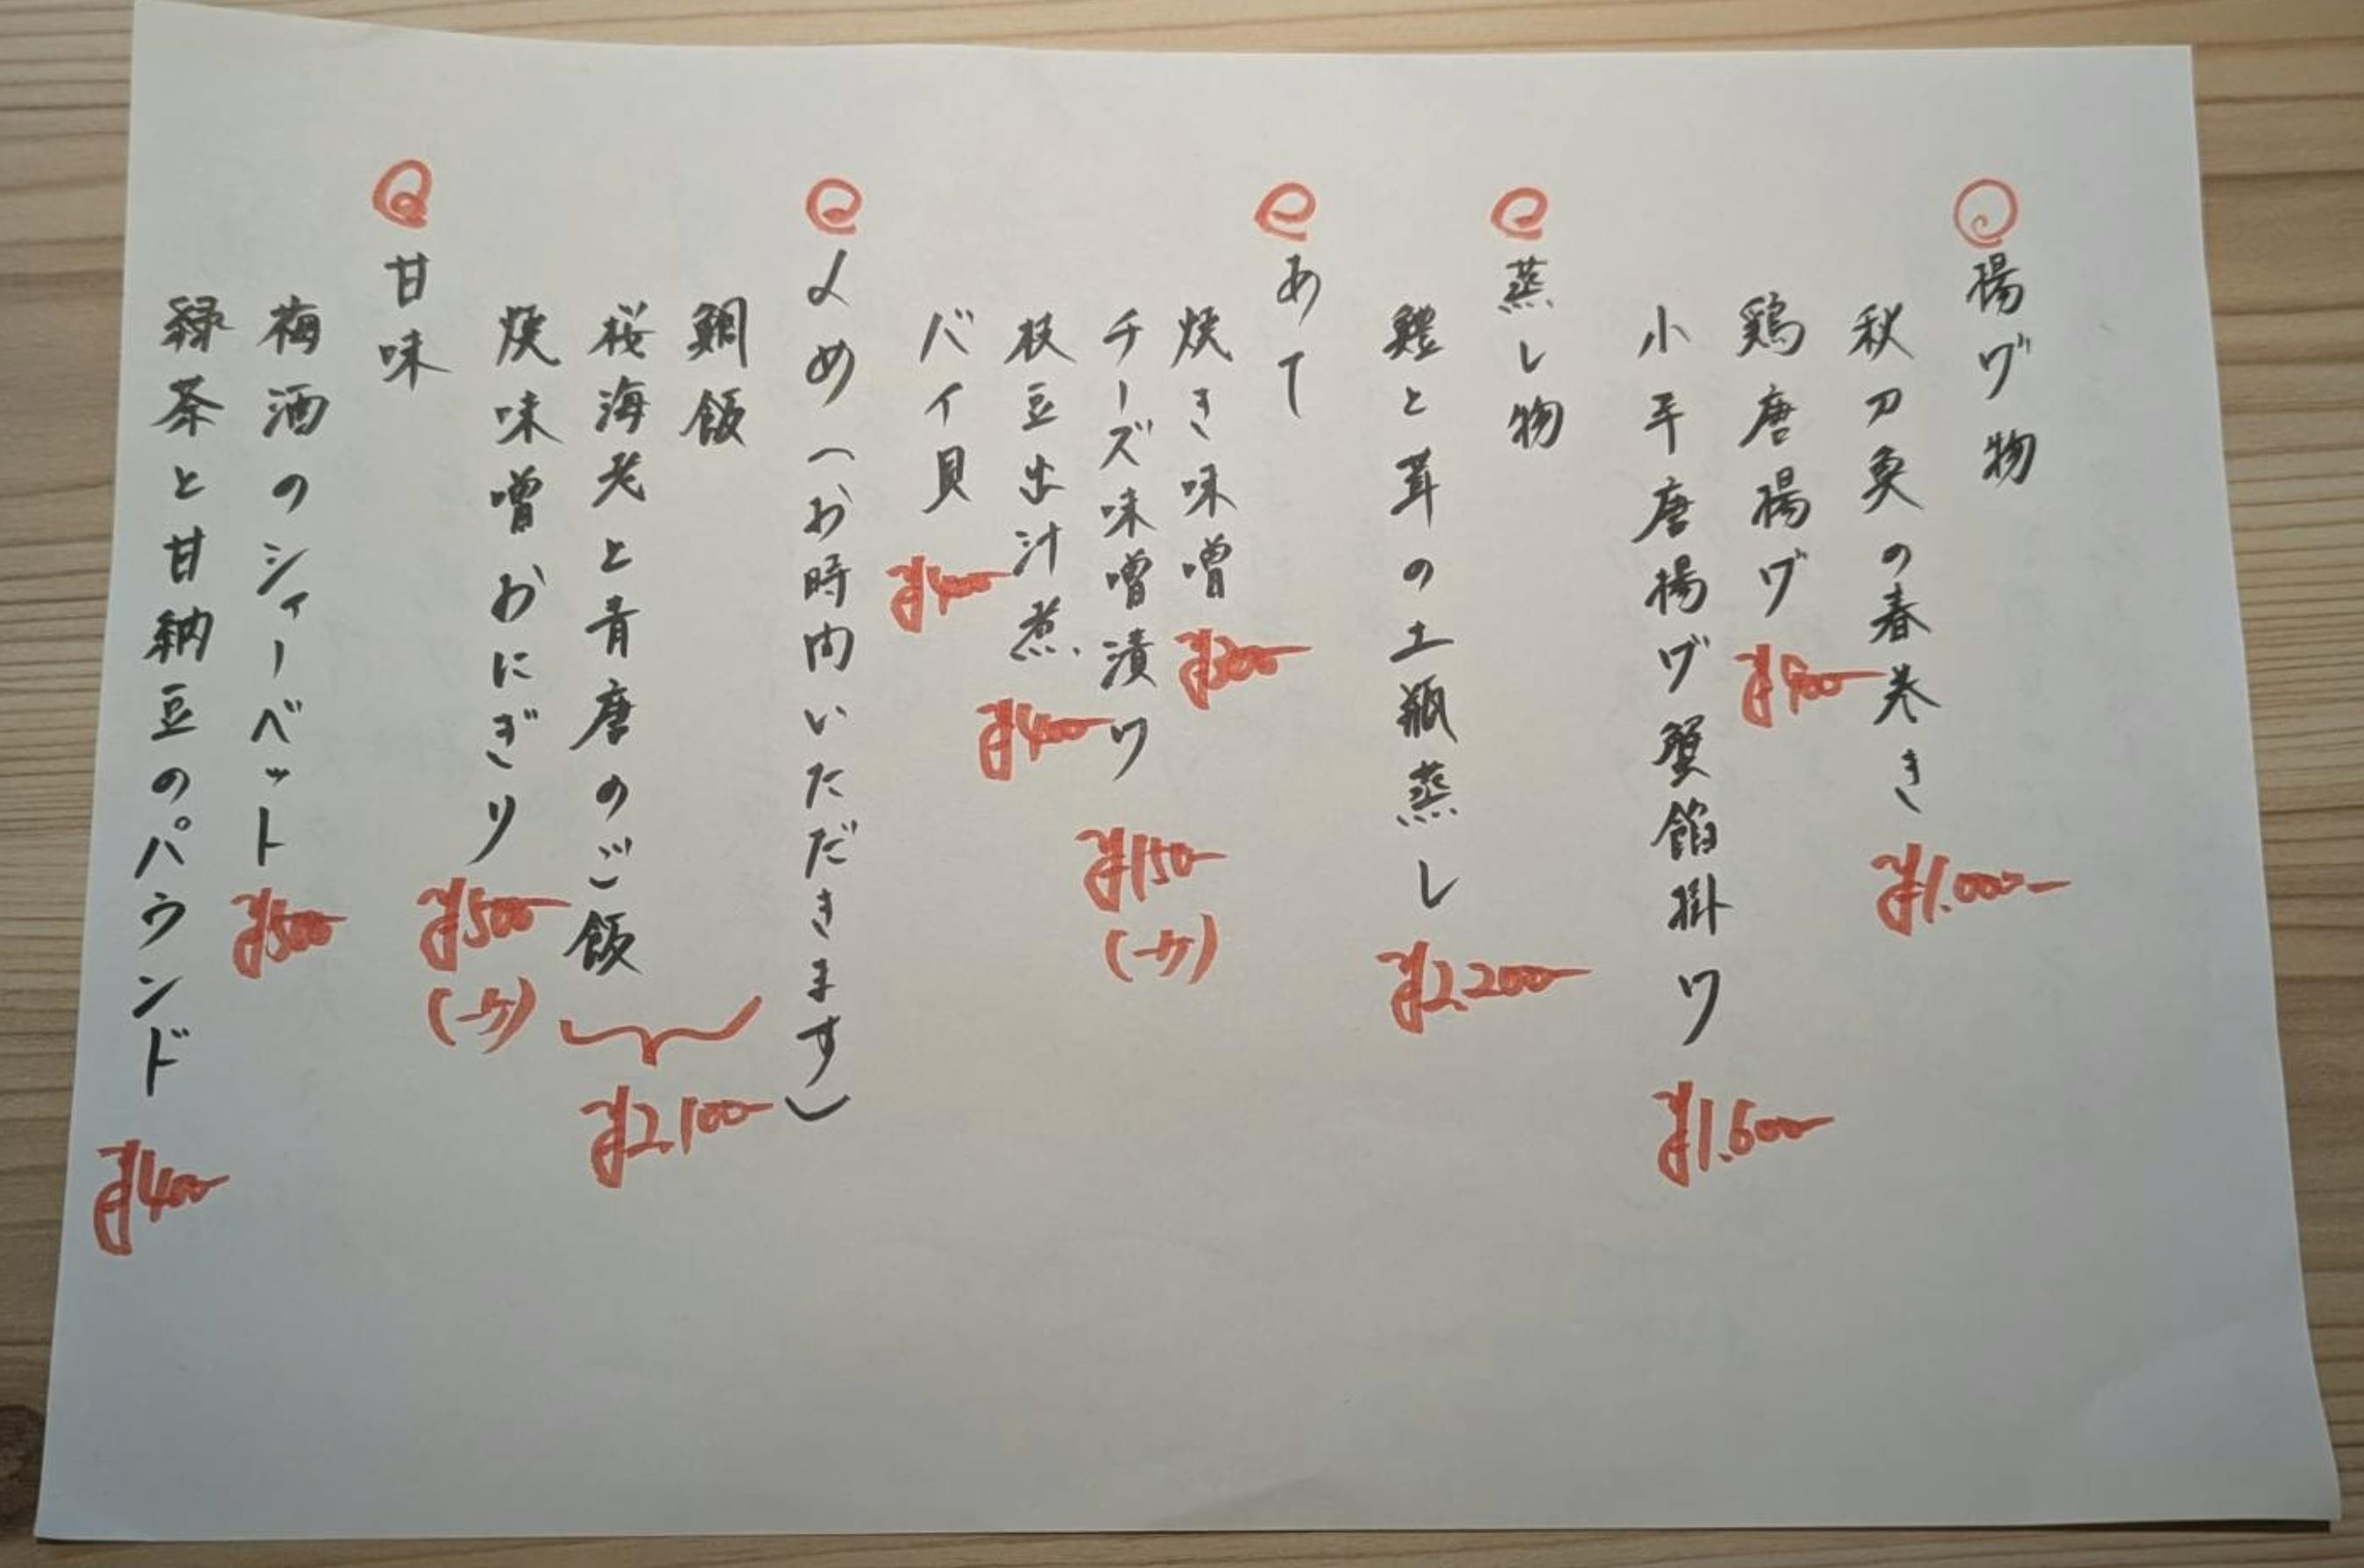 揚げ物
秋刀魚の春巻き ¥1.000-
鶏唐揚げ ¥900-
小芋唐揚げ蟹餡掛け ¥1.600-
蒸し物
鱧と茸の土瓶蒸し ¥2.200-
あて
焼き味噌 ¥300-
チーズ味噌漬け ¥150- (一ケ)
枝豆出汁煮 ¥400-
バイ貝 ¥400-
〆め（お時間いただきます）
鯛飯
桜海老と青唐のご飯
¥2.100-
焼味噌おにぎり ¥500- (一ケ)
甘味
梅酒のシャーベット ¥500-
緑茶と甘納豆のパウンド ¥400-